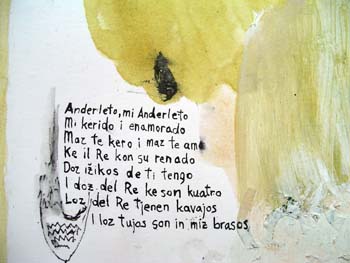 Anderleto, mi Anderleto
Mi kerido i enamorado
Maz te kero i maz te amo
Ke il Re kon su renado
Doz ižikos de ti tengo
I doz del Re ke son kuatro
Loz del Re tjenen kavajos
I loz tujas son in miz brasos